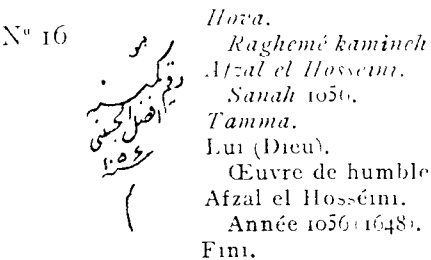 Nº 16
هو
رقم کمینه
افضل الحسینی
سنه ۱۰۵۶
Hova.
Raghemé kamineh
Afzal el Hosseini.
Sanah 1056.
Tamma.
Lui (Dieu).
Œuvre de humble
Afzal el Hosséini.
Année 1056 (1648).
Fini.